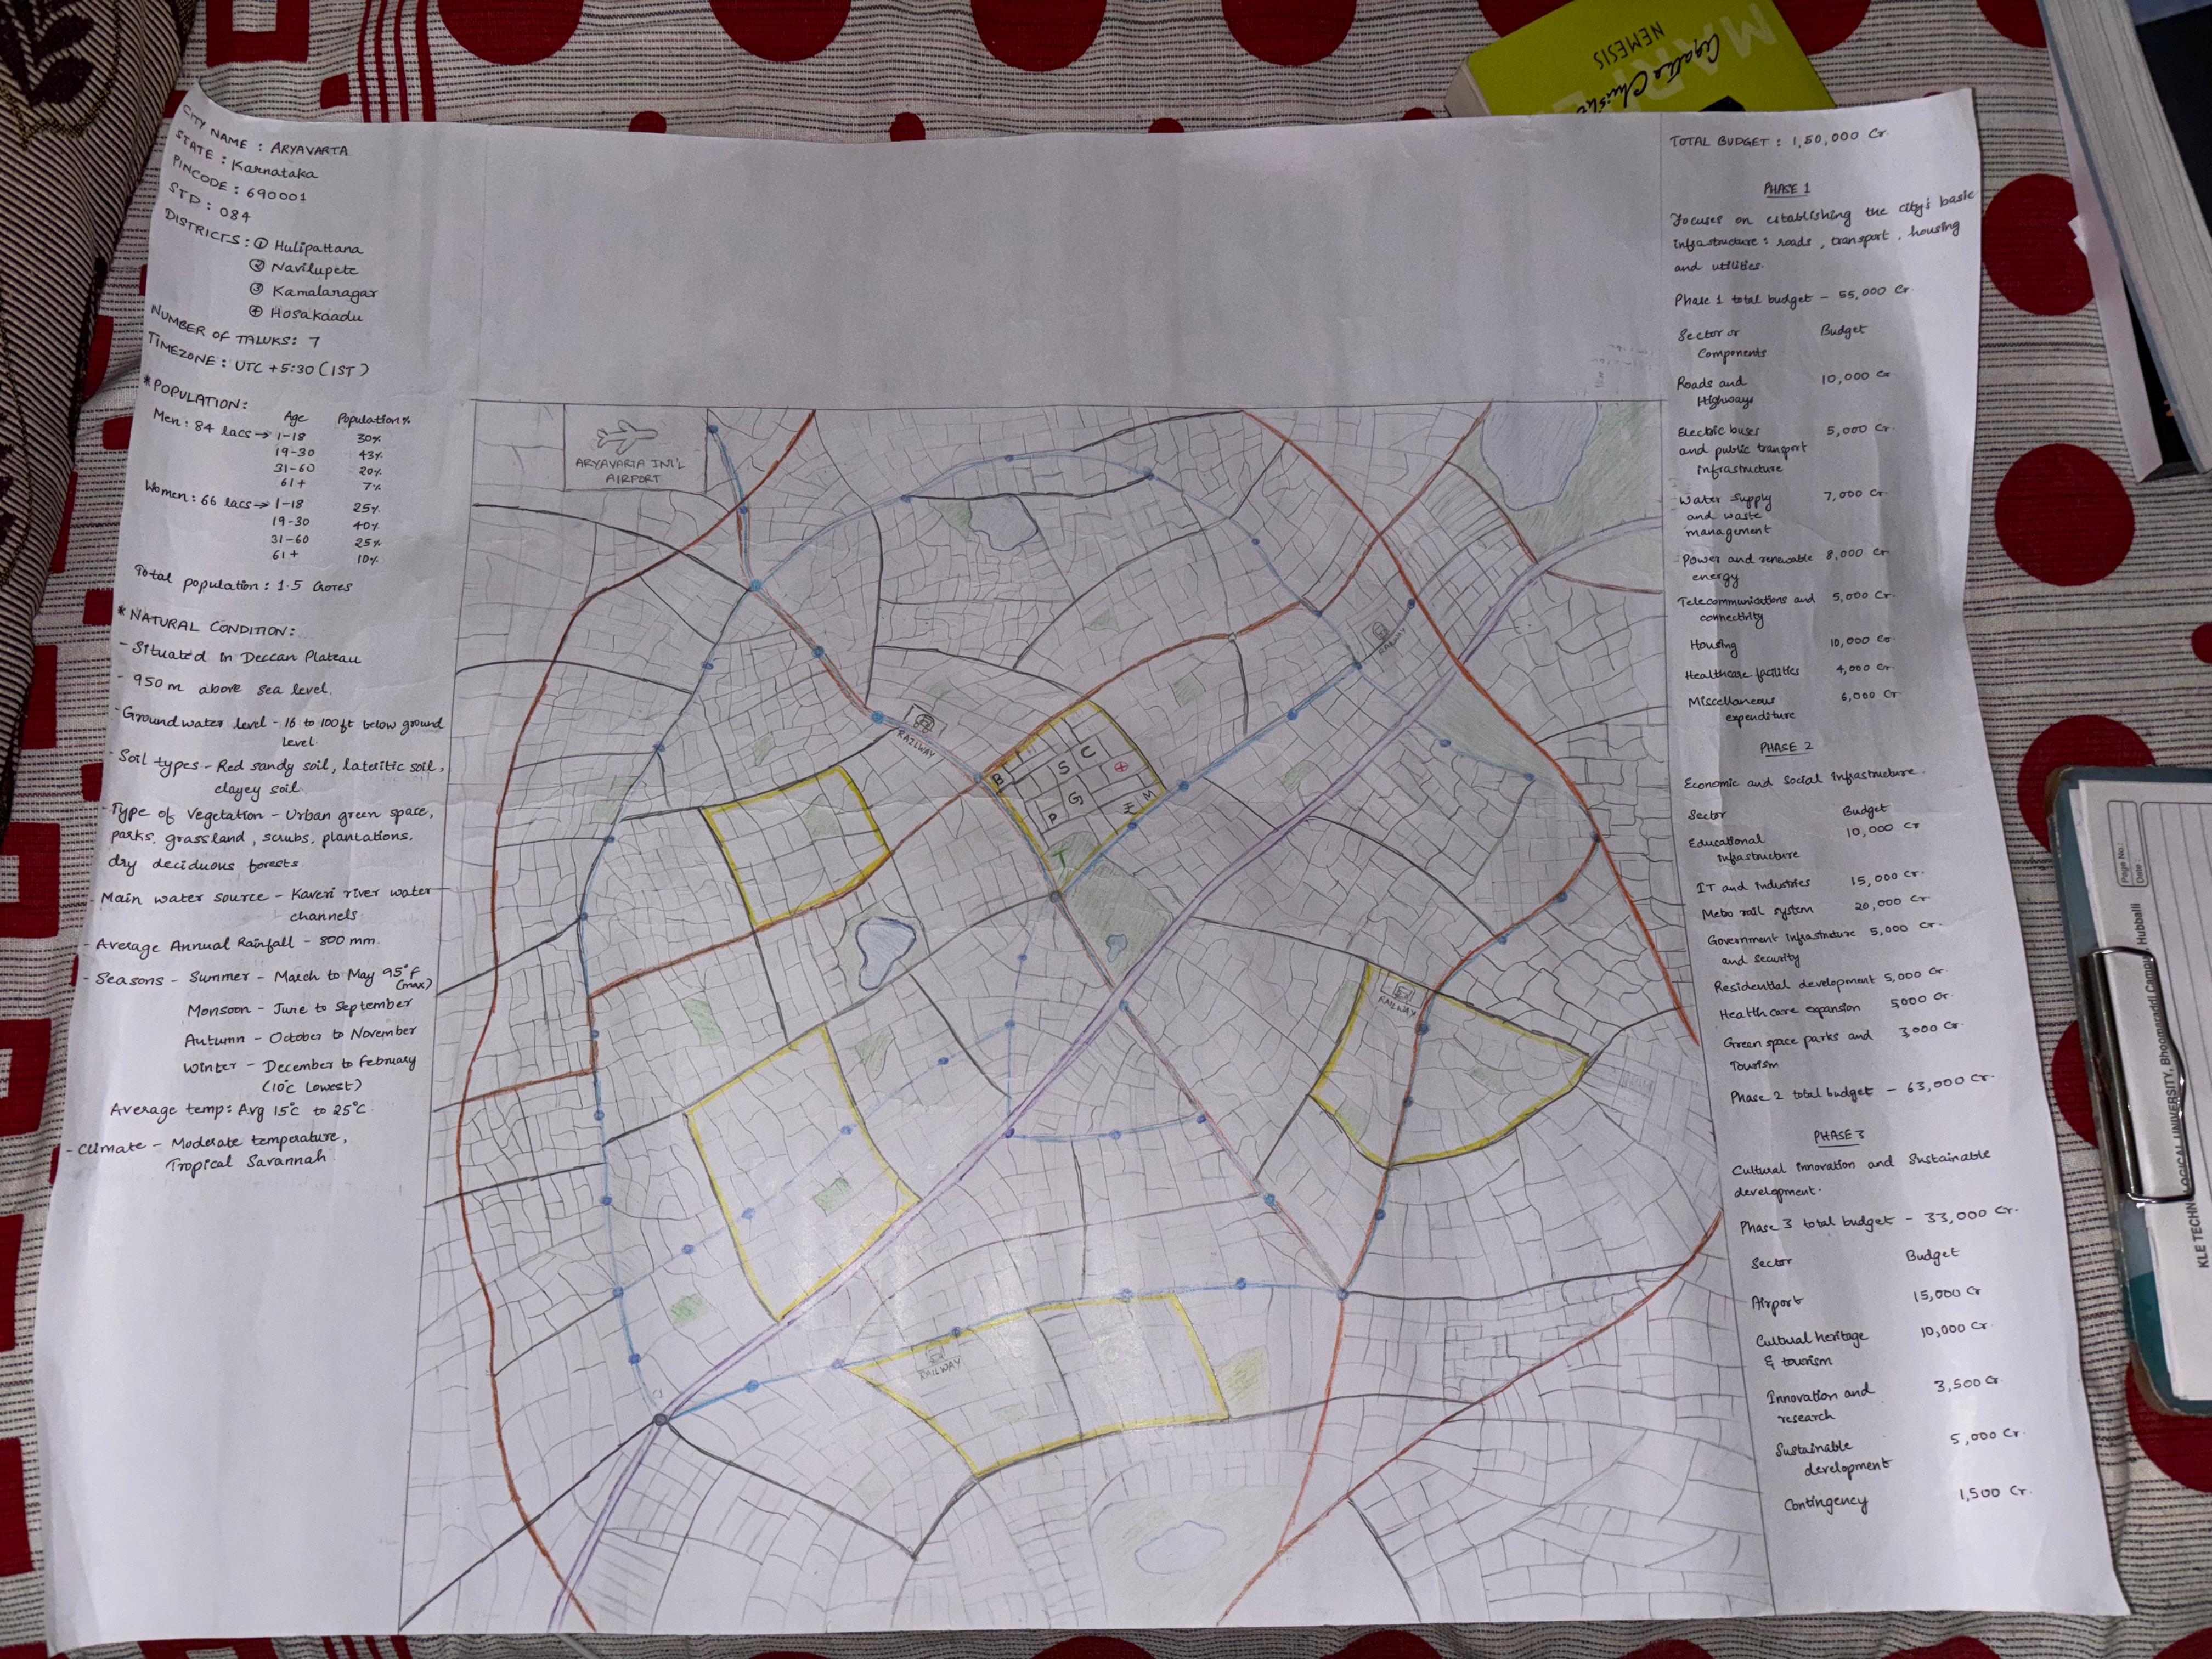 CITY NAME : ARYAVARTA
STATE : Karnataka
PINCODE : 690001
STD : 084
DISTRICTS : ① Hulipattana
② Navilupete
③ Kamalanagar
④ Hosakaadu
NUMBER OF TALUKS: 7
TIMEZONE : UTC +5:30 (IST)
* POPULATION:
Age Population %
Men : 84 lacs → 1-18 30%
19-30 43%
31-60 20%
61+ 7%
Women : 66 lacs → 1-18 25%
19-30 40%
31-60 25%
61+ 10%
Total population : 1.5 Crores
* NATURAL CONDITION:
- Situated in Deccan Plateau
- 950 m above sea level.
- Ground water level - 16 to 100ft below ground
level.
- Soil types - Red sandy soil, lateritic soil,
clayey soil.
- Type of Vegetation - Urban green space,
parks, grassland, scrubs, plantations,
dry deciduous forests.
- Main water source - Kaveri river water
channels.
- Average Annual Rainfall - 800 mm.
- Seasons - Summer - March to May 95°F
(max)
Monsoon - June to September
Autumn - October to November
Winter - December to February
(10°C Lowest)
Average temp: Avg 15°C to 25°C.
- Climate - Moderate temperature,
Tropical Savannah.
ARYAVARTA INT'L
AIRPORT
RAILWAY
RAILWAY
B
S
C
G
P
₹
M
T
RAILWAY
RAILWAY
TOTAL BUDGET : 1,50,000 Cr.
PHASE 1
Focuses on establishing the city's basic
infrastructure : roads, transport, housing
and utilities.
Phase 1 total budget - 55,000 Cr.
Sector or Budget
Components
Roads and 10,000 Cr
Highways
Electric buses 5,000 Cr.
and public transport
infrastructure
Water supply 7,000 Cr.
and waste
management
Power and renewable 8,000 Cr
energy
Telecommunications and 5,000 Cr.
connectivity
Housing 10,000 Cr.
Healthcare facilities 4,000 Cr.
Miscellaneous 6,000 Cr
expenditure
PHASE 2
Economic and Social Infrastructure.
Sector Budget
Educational 10,000 Cr
Infrastructure
IT and Industries 15,000 Cr.
Metro rail system 20,000 Cr.
Government infrastructure 5,000 Cr.
and security
Residential development 5,000 Cr
Health care expansion 5000 Cr.
Green space parks and 3,000 Cr.
Tourism
Phase 2 total budget - 63,000 Cr.
PHASE 3
Cultural innovation and Sustainable
development.
Phase 3 total budget - 33,000 Cr.
Sector Budget
Airport 15,000 Cr
Cultural heritage 10,000 Cr.
& tourism
Innovation and 3,500 Cr.
research
Sustainable 5,000 Cr.
development
Contingency 1,500 Cr.
Agatha Christie
NEMESIS
Page No.:
Date
KLE TECHNOLOGICAL UNIVERSITY, Bhoomaraddi Campus, Hubballi